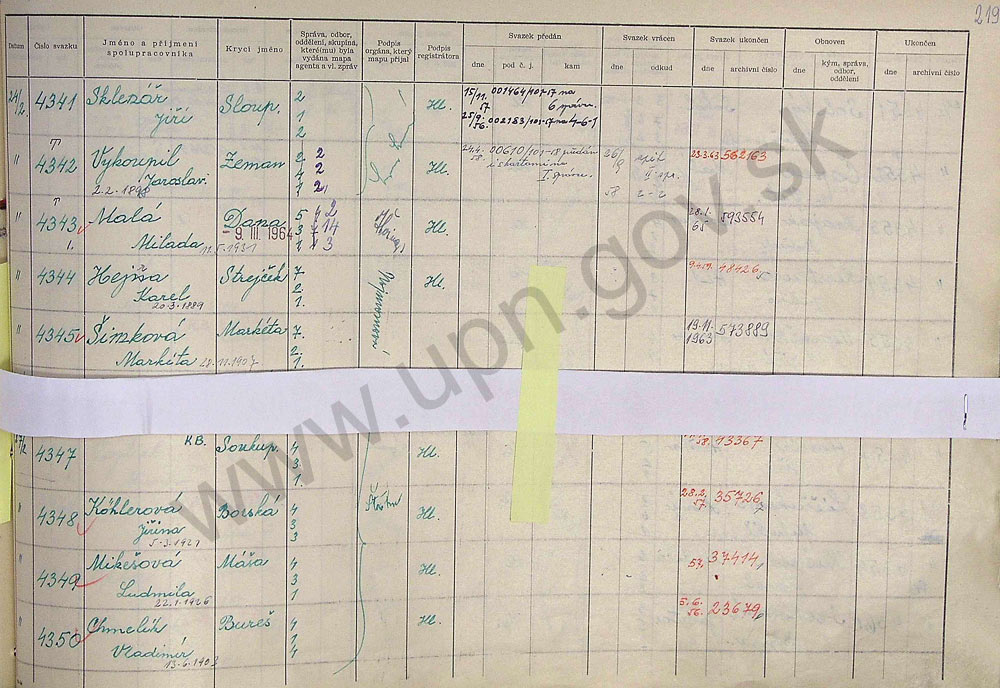 219
Datum
Číslo svazku
Jméno a příjmení spolupracovníka
Krycí jméno
Správa, odbor, oddělení, skupina, které(mu) byla vydána mapa agenta a vl. zpráv
Podpis orgána, který mapu přijal
Podpis registrátora
Svazek předán
dne pod č. j. kam
Svazek vrácen
dne odkud
Svazek ukončen
dne archivní číslo
Obnoven
dne kým, správa, odbor, oddělení
Ukončen
dne archivní číslo
24/2. 4341 Sklezář Sloup. 2 Hl. 15/11. 57 001464/107-57 na
Jiří 1 6 správu.
2 25/9. 56. 002183/
" 4342 Vykoupil Zeman 2 2 Hl. 24.4. 58. 00610/ 23.3.63 562163
Jaroslav. 4 2 I. správu.
2.2.1898 1 2 58 2-2
" 4343 Malá Dana 5 4 2 Hl. 28.1. 65 593554
- 9. III. 1964 3 7 14
1. Milada 1 1 3
" 4344 Hejna Strejček 7 Hl. 48426
Karel 2.
20.3.1889 1.
" 4345 Šimková Markéta 7. 19.11. 1963 573889
Markéta 28.11.1907 2.
1.
www.upn.gov.sk
27/2 4347 K.B. Soukup. 4 Hl. 58. 43367
3
1
" 4348 Köhlerová Borská 4 Hl. 28.2. 57. 35726
Jiřina 3
5.3.1921 3
" 4349 Mikešová Máša 4 Hl. 57. 37414
Ludmila 3
22.1.1926 1
" 4350 Chmelík Bureš 4 Hl. 5.6. 56. 23679
Vladimír 1
13.6.1902 4